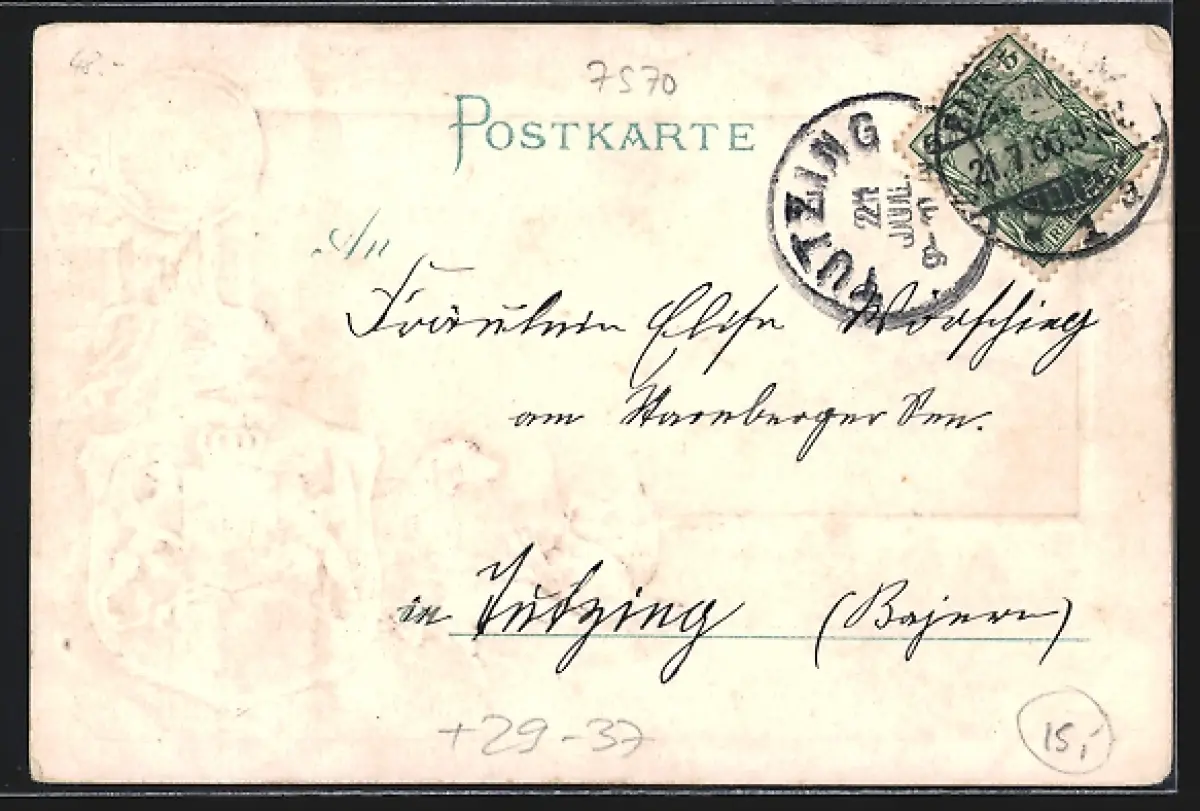 7570
POSTKARTE
TUTZING
22
JUL.
21.7.00.
An
Fräulein Elise
am Starnberger See.
in Tutzing (Bayern)
+29-37
15,-